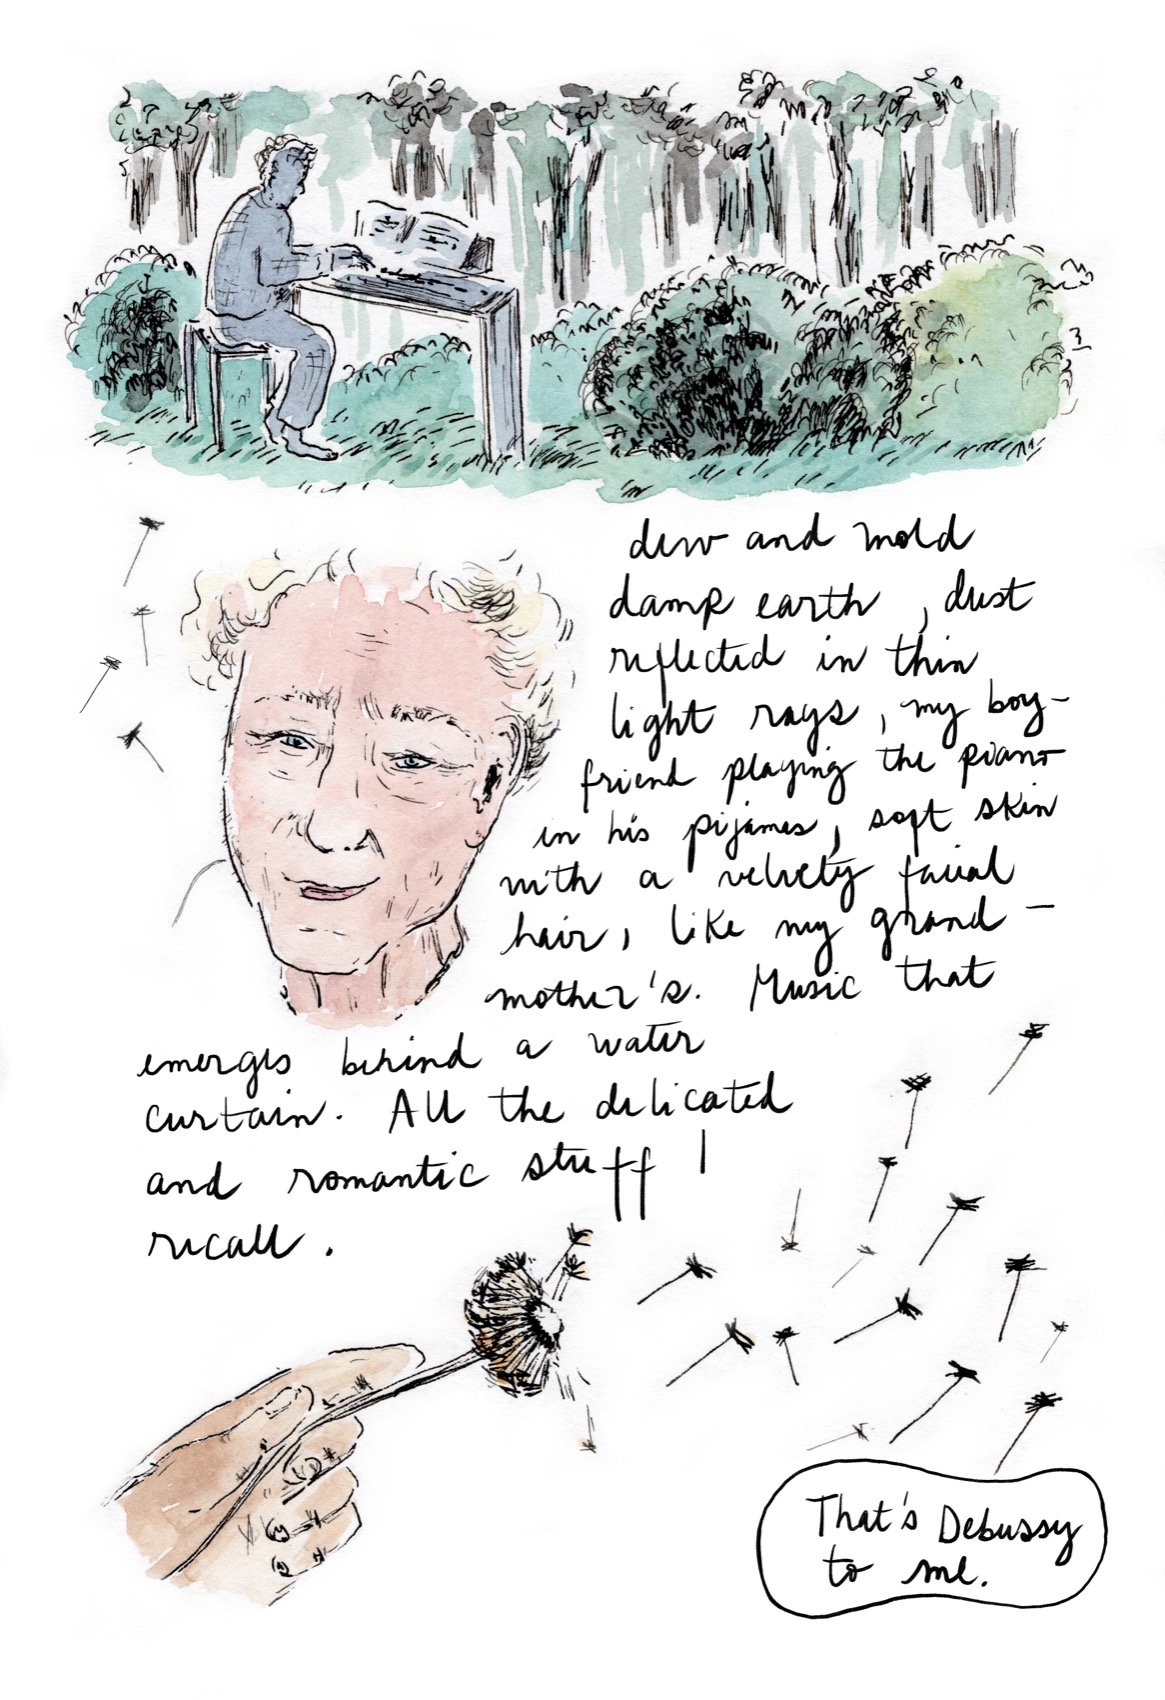 dew and mold
damp earth, dust
reflected in thin
light rays, my boy-
friend playing the piano
in his pijames, soft skin
with a velvety facial
hair, like my grand-
mother's. Music that
emerges behind a water
curtain. All the delicated
and romantic stuff I
recall.
That's Debussy
to me.